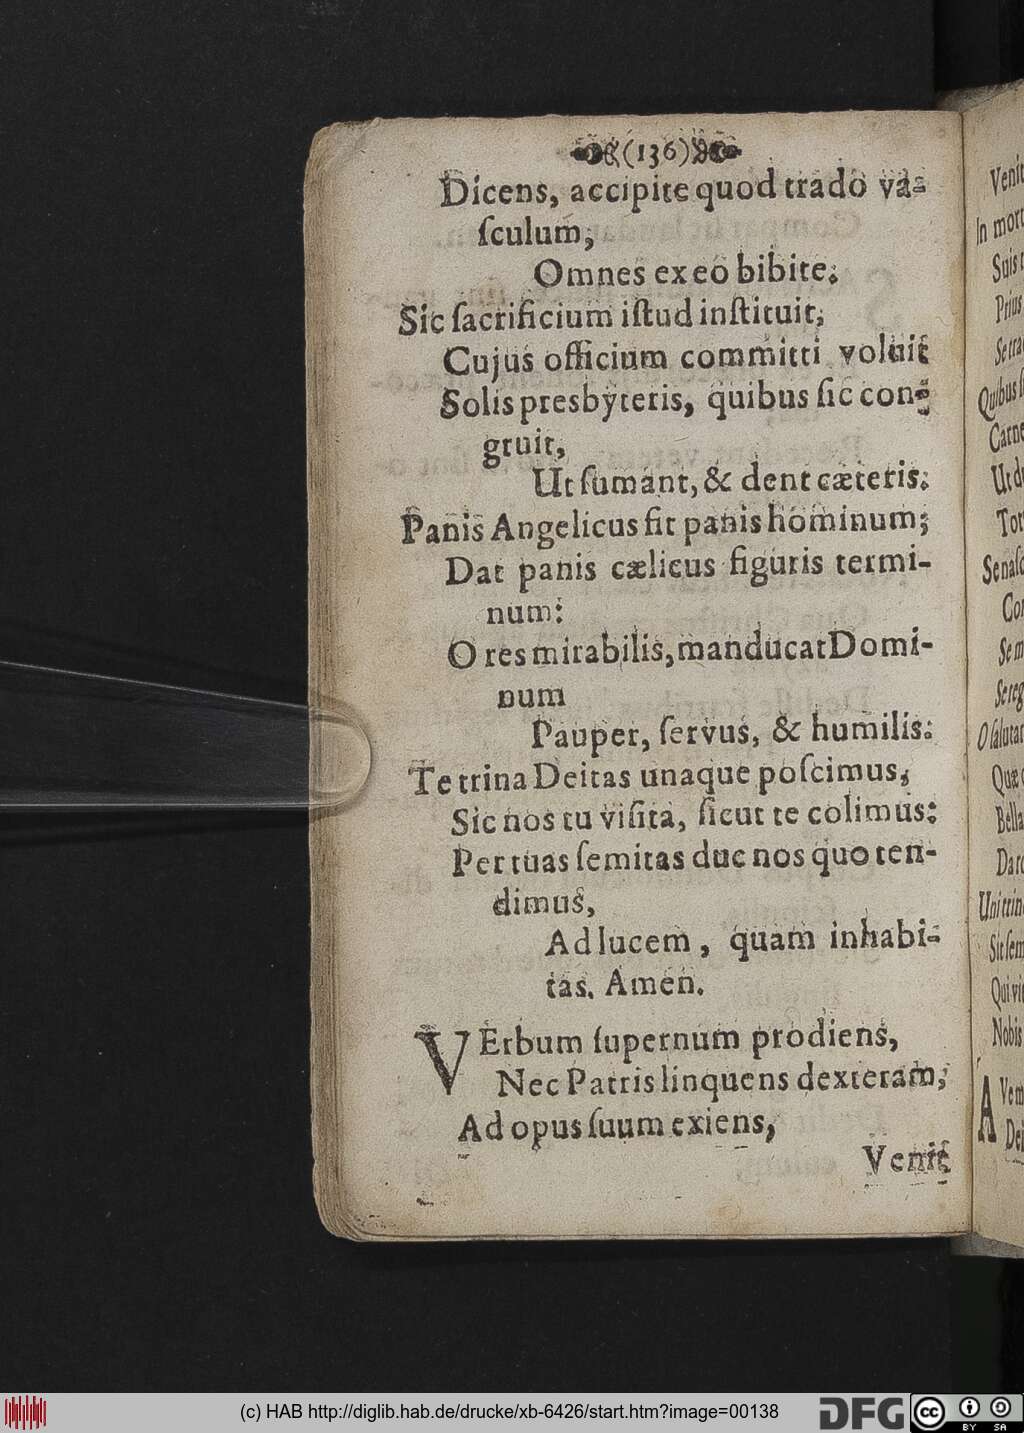 (136)
Dicens, accipite quod trado va-
ſculum,
Omnes ex eo bibite.
Sic ſacrificium iſtud inſtituit,
Cujus officium committi voluit
Solis presbyteris, quibus ſic con-
gruit,
Ut ſumant, & dent cæteris.
Panis Angelicus fit panis hominum;
Dat panis cælicus figuris termi-
num:
O res mirabilis, manducat Domi-
num
Pauper, ſervus, & humilis.
Te trina Deitas unaque poſcimus,
Sic nos tu viſita, ſicut te colimus:
Per tuas ſemitas duc nos quo ten-
dimus,
Ad lucem, quam inhabi-
tas. Amen.
VErbum ſupernum prodiens,
Nec Patris linquens dexteram,
Ad opus ſuum exiens,
Venit
In
Suis
Prius
Quibus
Ut
O
Bella
Nobis
(c) HAB http://diglib.hab.de/drucke/xb-6426/start.htm?image=00138
DFG
cc
BY SA